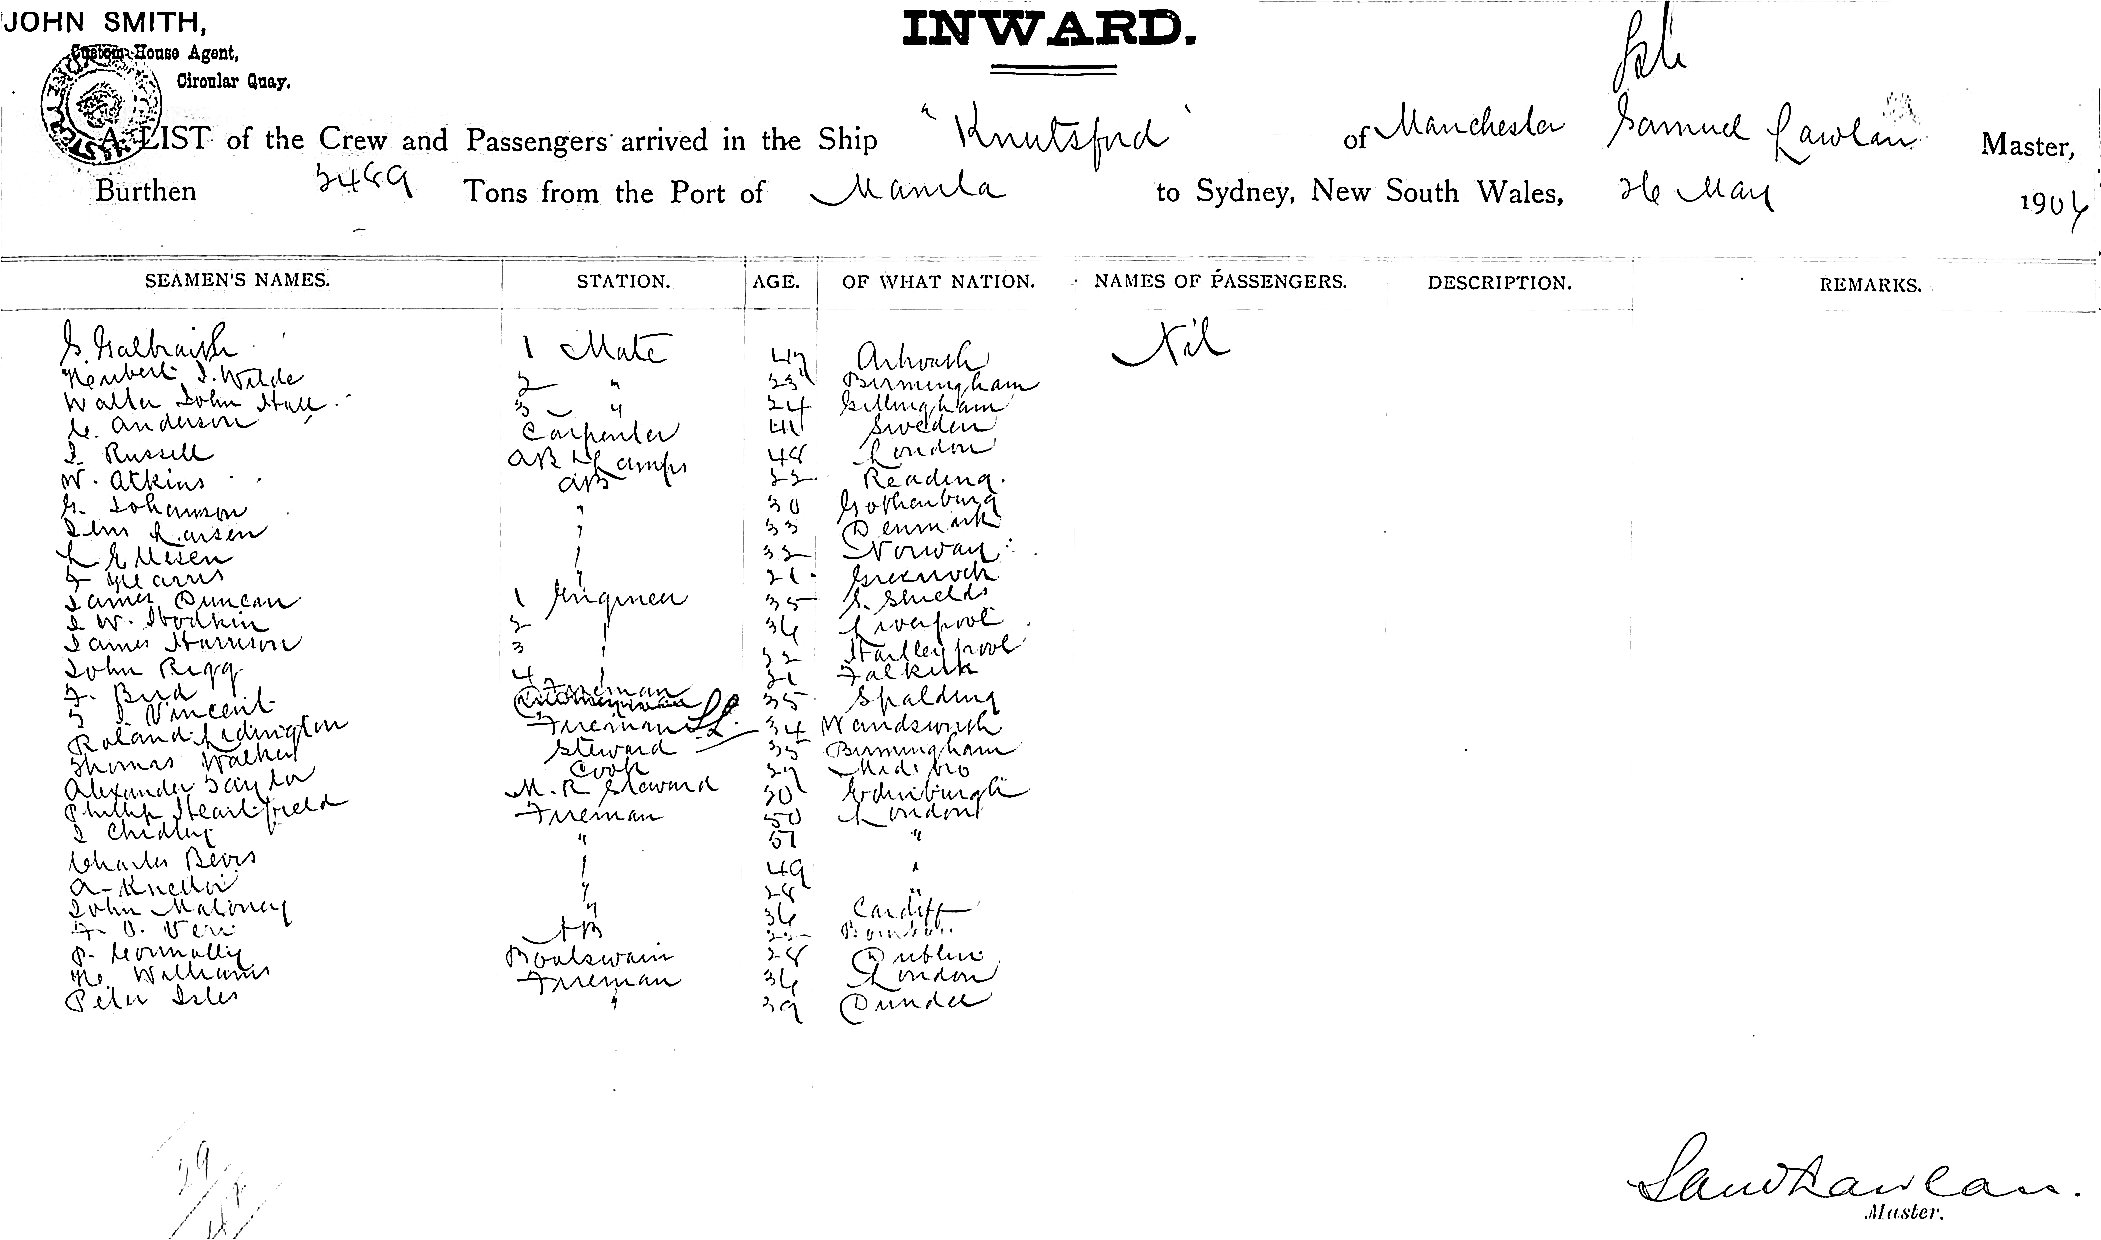 JOHN SMITH,
Custom House Agent,
Circular Quay.
INWARD.
A LIST of the Crew and Passengers arrived in the Ship "Knutsford" of Manchester Samuel Lawlan Master,
Burthen Tons from the Port of Manila to Sydney, New South Wales, 26 May 1906
SEAMEN'S NAMES. STATION. AGE. OF WHAT NATION. NAMES OF PASSENGERS. DESCRIPTION. REMARKS.
G. Galbraith 1 Mate 47 Nil
Herbert J. Wilde 2 " Birmingham
Walter John Hall 3 " 24 Gillingham
C. Anderson Carpenter 41 Sweden
J. Russell AB & Lamps 48 London
W. Atkins AB 22 Reading.
G. Johannson " 30 Gothenburg
Larsen " 33 Denmark
L Ellesen " 32 Norway
" 21 Greenock
James Duncan 1 Engineer 35 S. Shields
J W. Hodkin 2 " 36 Liverpool
James Harrison 3 " 22 Hartlepool
John Rigg 4 " 21 Falkirk
F. Bird Fireman 35 Spalding
J Vincent Fireman 34 Wandsworth
Roland Lidington Steward 35 Birmingham
Thomas Walker Cook
Alexander Taylor M. R Steward Edinburgh
Phillip Heartfield Fireman 50 London
J Chidley " 51 "
Charles Bevis " 49 "
A. " 28 "
John Maloney " 36 Cardiff
AB
P. Connolly Boatswain 28 Dublin
H. Williams Fireman 36 London
Peter Isles " 39 Dundee
Master.